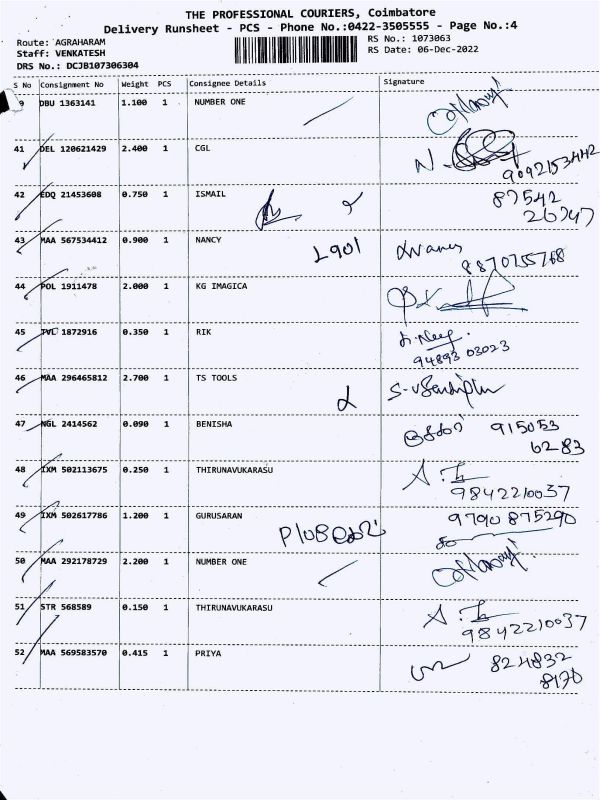 THE PROFESSIONAL COURIERS, Coimbatore
Delivery Runsheet - PCS - Phone No.:0422-3505555 - Page No.:4
Route: AGRAHARAM
RS No.: 1073063
Staff: VENKATESH
RS Date: 06-Dec-2022
DRS No.: DCJB107306304
S No Consignment No Weight PCS Consignee Details Signature
9 DBU 1363141 1.100 1 NUMBER ONE
41 DEL 120621429 2.400 1 CGL
9092153442
42 EDQ 21453608 0.750 1 ISMAIL 87542
26747
43 MAA 567534412 0.900 1 NANCY L901 Nancy
8870755768
44 POL 1911478 2.000 1 KG IMAGICA
45 TVL 1872916 0.350 1 RIK
94893 03023
46 MAA 296465812 2.700 1 TS TOOLS
47 NGL 2414562 0.090 1 BENISHA 915053
6283
48 IXM 502113675 0.250 1 THIRUNAVUKARASU
9842210037
49 IXM 502617786 1.200 1 GURUSARAN 9790875290
50 MAA 292178729 2.200 1 NUMBER ONE
51 STR 568589 0.150 1 THIRUNAVUKARASU
9842210037
52 MAA 569583570 0.415 1 PRIYA 824832
8170